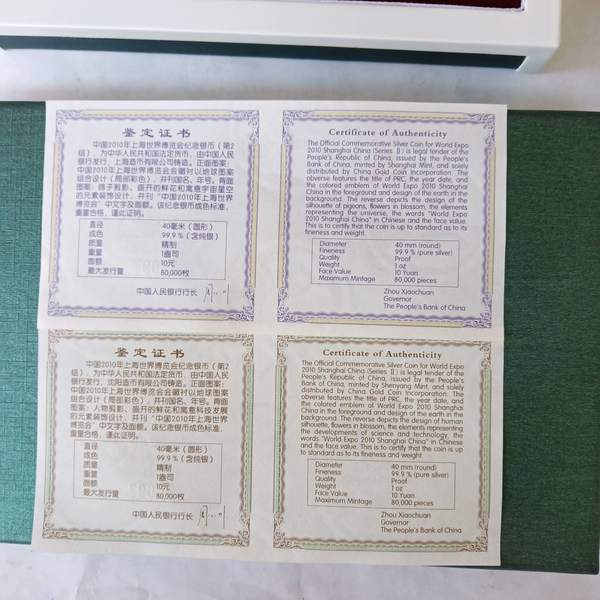 鉴定证书
中国2010年上海世界博览会纪念银币（第2
组），为中华人民共和国法定货币，由中国人民银
行发行，上海造币有限公司铸造。正面图案：
中国2010年上海世界博览会会徽衬以地球图案
组合设计（局部彩色），并刊国名、年号。背面
图案：鸽子剪影、盛开的鲜花和寓意宇宙星空
的元素装饰设计，并刊“中国2010年上海世界
博览会”中文字及面额。该纪念银币成色标准，
重量合格，谨此证明。
直径 40毫米（圆形）
成色 99.9％（含纯银）
质量 精制
重量 1盎司
面额 10元
最大发行量 80,000枚
中国人民银行行长
Certificate of Authenticity
The Official Commemorative Silver Coin for World Expo
2010 Shanghai China (Series Ⅱ) is legal tender of the
People's Republic of China, issued by the People's
Bank of China, minted by Shanghai Mint, and solely
distributed by China Gold Coin Incorporation. The
obverse features the title of PRC, the year date, and
the colored emblem of World Expo 2010 Shanghai
China in the foreground and design of the earth in the
background. The reverse depicts the design of the
silhouette of pigeons, flowers in blossom, the elements
representing the universe, the words "World Expo
2010 Shanghai China" in Chinese and the face value.
This is to certify that the coin is up to standard as to its
fineness and weight.
Diameter 40 mm (round)
Fineness 99.9 % (pure silver)
Quality Proof
Weight 1 oz
Face Value 10 Yuan
Maximum Mintage 80,000 pieces
Zhou Xiaochuan
Governor
The People's Bank of China
鉴定证书
中国2010年上海世界博览会纪念银币（第2
组），为中华人民共和国法定货币，由中国人民
银行发行，沈阳造币有限公司铸造。正面图案：
中国2010年上海世界博览会会徽衬以地球图案
组合设计（局部彩色），并刊国名、年号。背面
图案：人物剪影、盛开的鲜花和寓意科技发展
的元素装饰设计，并刊“中国2010年上海世界
博览会”中文字及面额。该纪念银币成色标准，
重量合格，谨此证明。
直径 40毫米（圆形）
成色 99.9％（含纯银）
质量 精制
重量 1盎司
面额 10元
最大发行量 80,000枚
中国人民银行行长
Certificate of Authenticity
The Official Commemorative Silver Coin for World Expo
2010 Shanghai China (Series Ⅱ) is legal tender of the
People's Republic of China, issued by the People's
Bank of China, minted by Shenyang Mint, and solely
distributed by China Gold Coin Incorporation. The
obverse features the title of PRC, the year date, and
the colored emblem of World Expo 2010 Shanghai
China in the foreground and design of the earth in the
background. The reverse depicts the design of human
silhouette, flowers in blossom, the elements representing
the developments of science and technology, the
words "World Expo 2010 Shanghai China" in Chinese
and the face value. This is to certify that the coin is up
to standard as to its fineness and weight
Diameter 40 mm (round)
Fineness 99.9 % (pure silver)
Quality Proof
Weight 1 oz
Face Value 10 Yuan
Maximum Mintage 80,000 pieces
Zhou Xiaochuan
Governor
The People's Bank of China